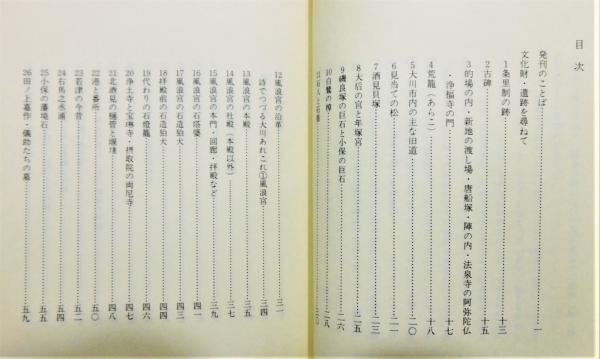 目次
発刊のことば……一
文化財・遺跡を尋ねて
1 条里制の跡……十三
2 古碑……十五
3 的場の内・新地の渡し場・唐船塚・陣の内・法泉寺の阿弥陀仏
・浄福寺の門……十七
4 荒籠（あらこ）……十八
5 大川市内の主な旧道……二〇
6 見当ての松……二一
7 酒見貝塚……二三
8 大后の宮と年塚宮……二五
9 磯良塚の巨石と小保の巨石……二六
10 白鷺の樟……二八
12 風浪宮の沿革……三一
詩でつづる大川あれこれ①風浪宮……三四
13 風浪宮の本殿……三五
14 風浪宮の社殿（本殿以外）……三七
15 風浪宮の本門・回廊・拝殿など……三九
16 風浪宮の石塔婆……四一
17 風浪宮の石造狛犬……四三
18 拝殿前の石造狛犬……四四
19 代わりの石燈籠……四六
20 浄土寺と宝琳寺・摂取院の両尼寺……四六
21 北酒見の樋管と堰堤……四八
22 港と番所……五〇
23 若津の今昔……五二
24 右馬之丞浦……五四
25 小保の藩境石……五五
26 田ノ上嘉作・儀助たちの墓……五九